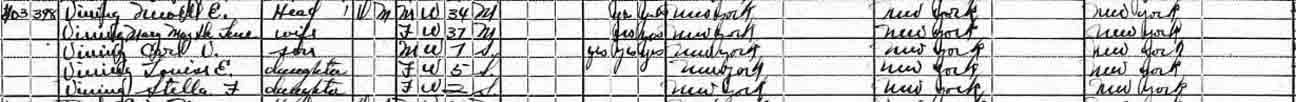 403 398 Vining E. Head 1 M M W 34 M yes yes New York New York New York
Vining Mary May wife F W 37 M yes yes New York New York New York
Vining D. son M W 7 S yes yes yes New York New York New York
Vining Louise E. daughter F W 5 S New York New York New York
Vining Stella F daughter F W 2 S New York New York New York